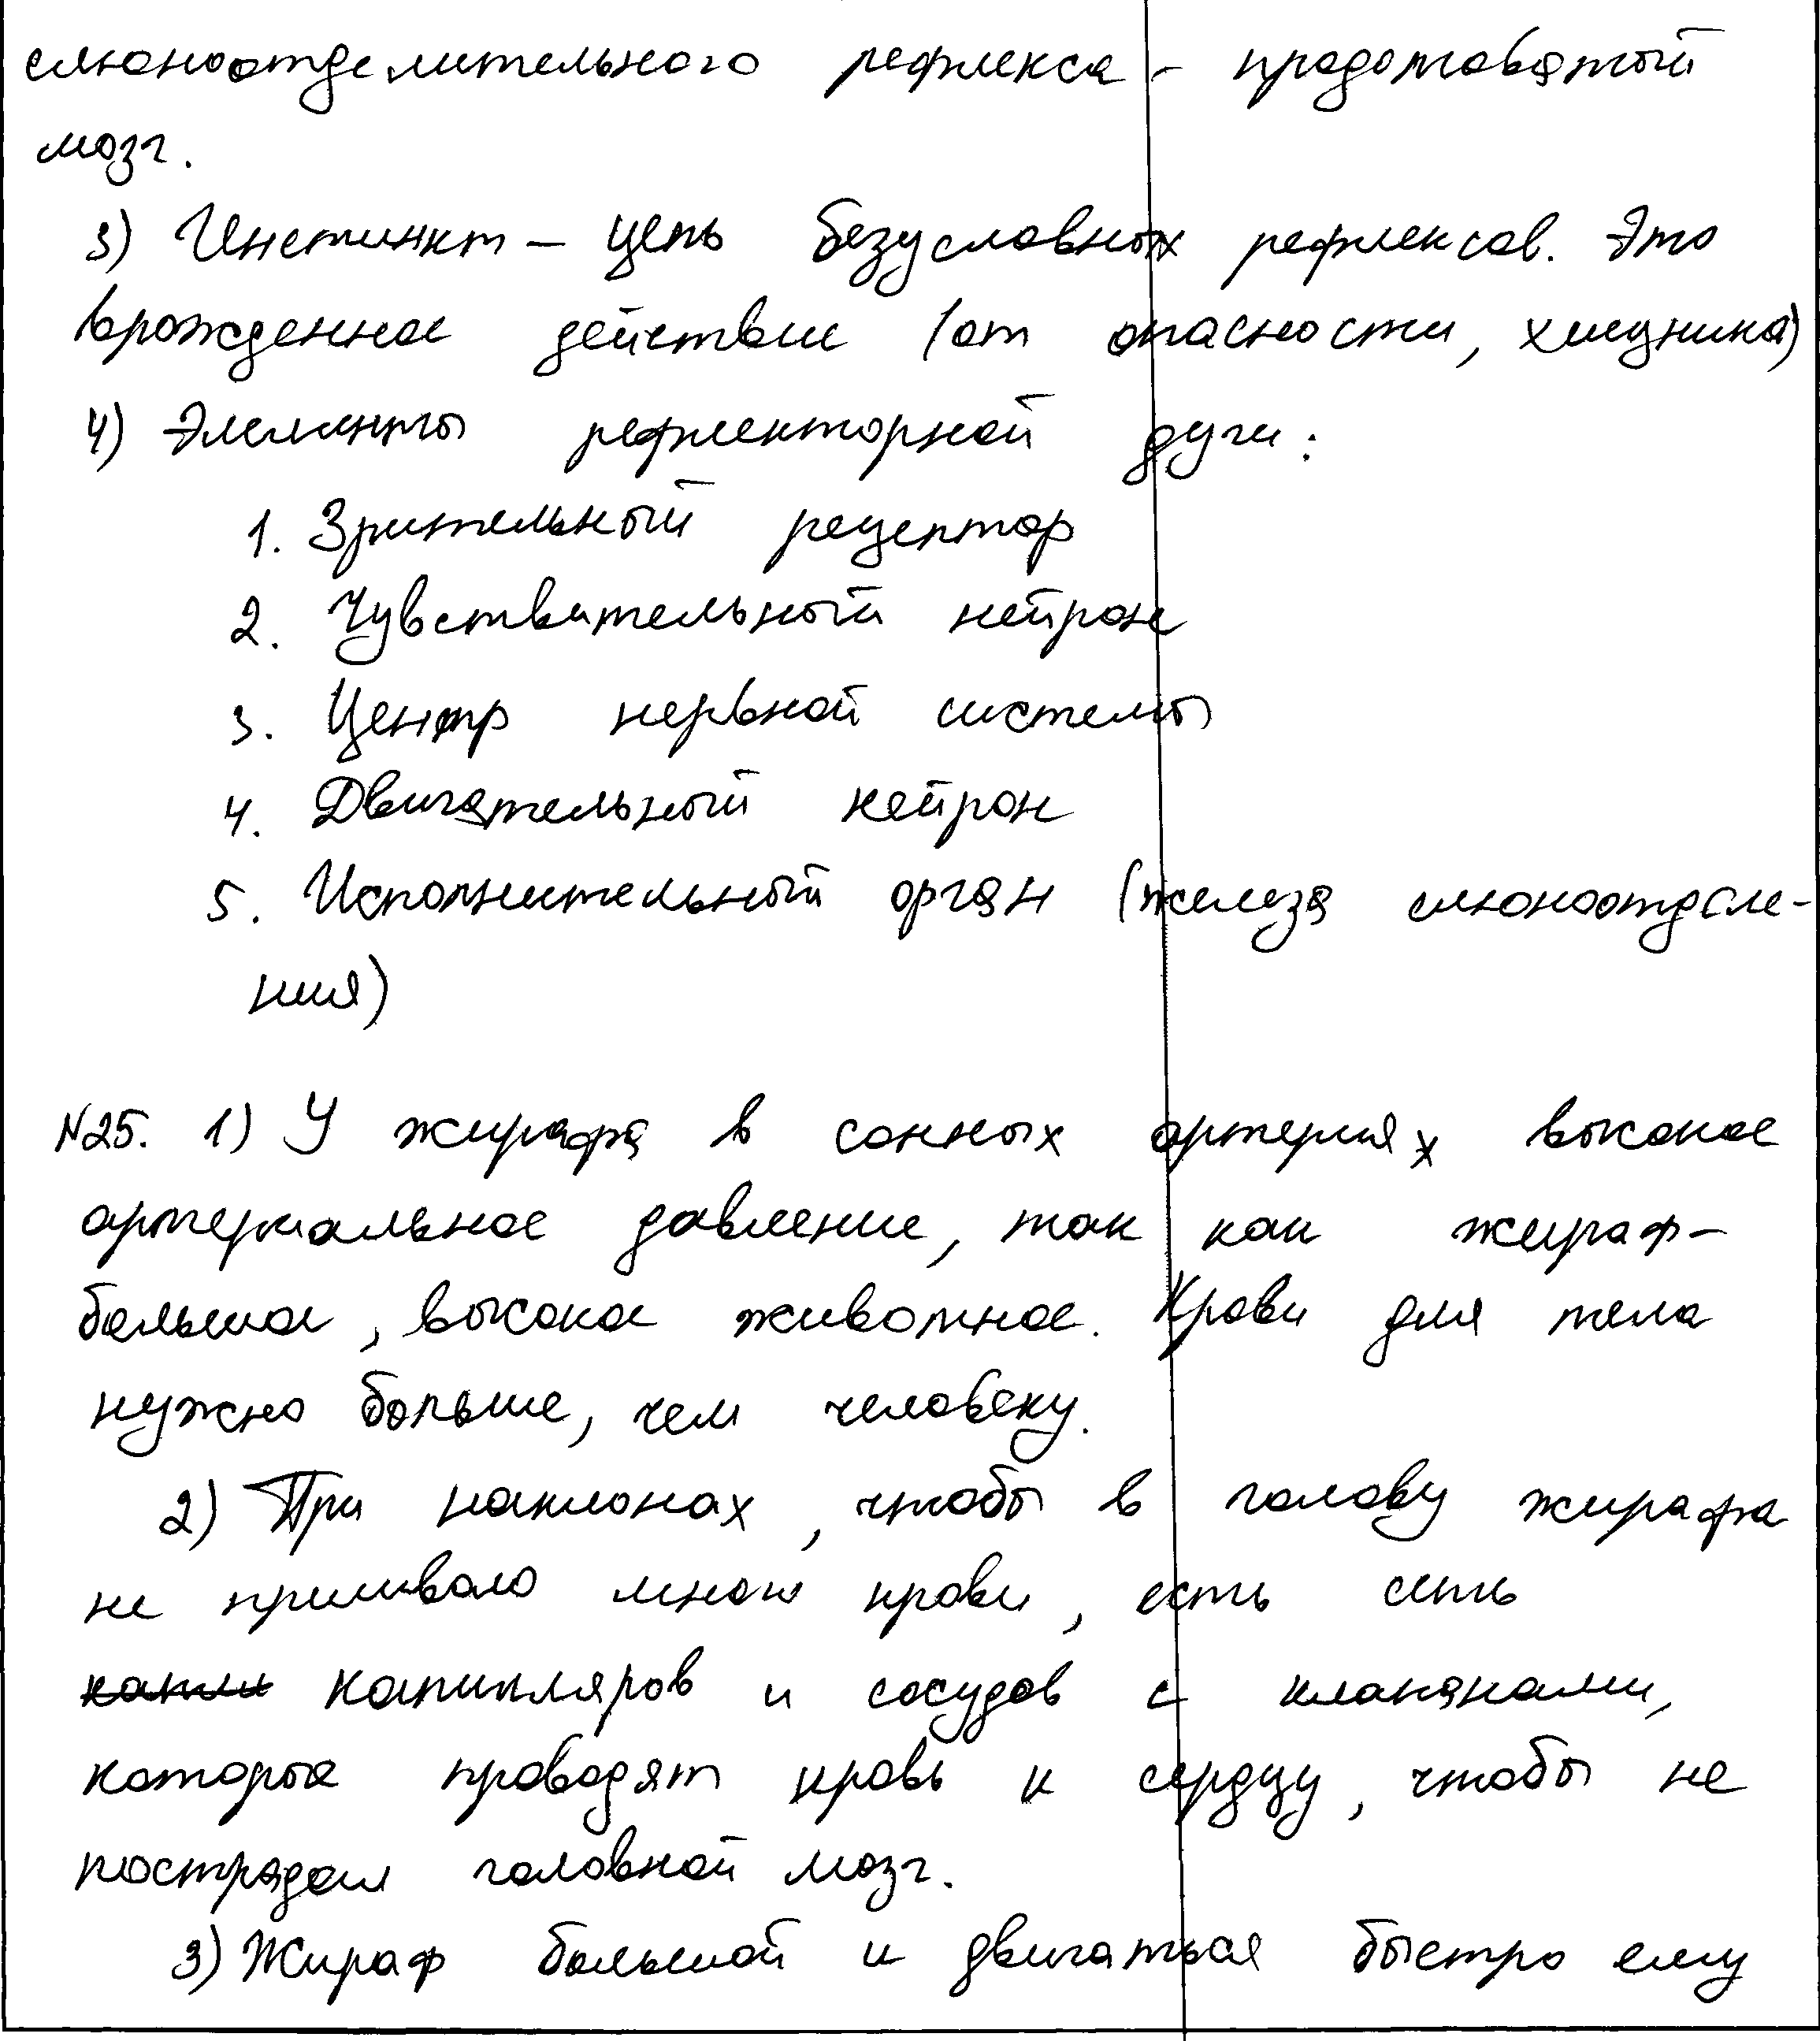 слюноотделительного рефлекса - продолговатый
мозг.
3) Инстинкт – цепь безусловных рефлексов. Это
врожденное действие (от опасности, хищника)
4) Элементы рефлекторной дуги:
1. Зрительный рецептор
2. Чувствительный нейрон
3. Центр нервной системы
4. Двигательный нейрон
5. Исполнительный орган (железа слюноотделе-
ния)
№25. 1) У жирафа в сонных артериях высокое
артериальное давление, так как жираф-
большое, высокое животное. Крови для тела
нужно больше, чем человеку.
2) При наклонах, чтобы в голову жирафа
не приливало много крови, есть сеть
капилляров и сосудов с клапанами,
которые проводят кровь к сердцу, чтобы не
пострадал головной мозг.
3) Жираф большой и двигаться быстро ему